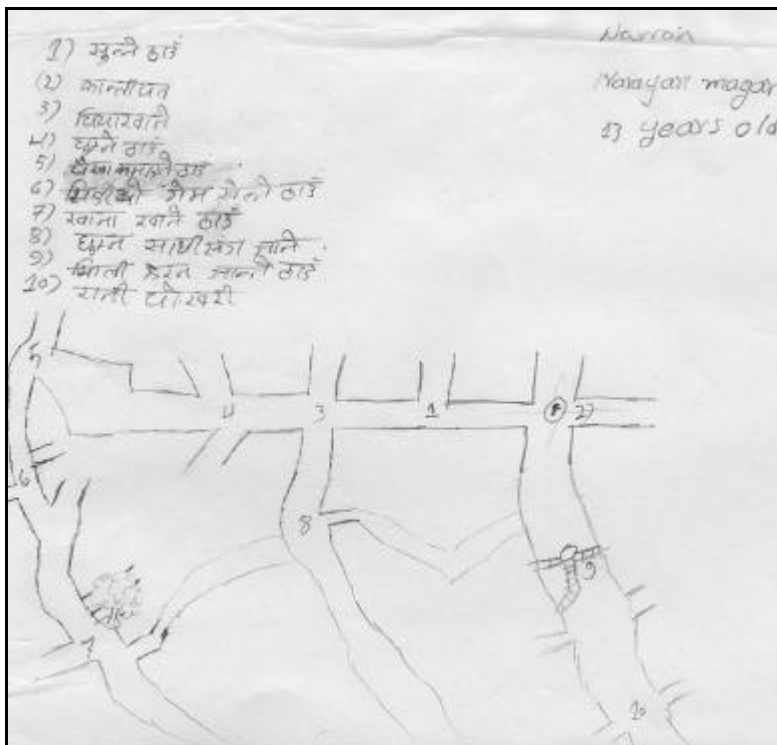 1) सुत्ने ठाउं
(2) कान्तीपत
3)
4) घुम्ने ठाउं
5) पैसा कमाउने ठाउं
6) भिडीओ गेम खेल्ने ठाउं
7) खाना खाने ठाउं
8) घुम्न साथीसंग जाने
9) हेरन जान्ने ठाउं
10) रानी पोखरी
Narayan magar
13 years old
5
4 3 1 2
6
8
9
7
10